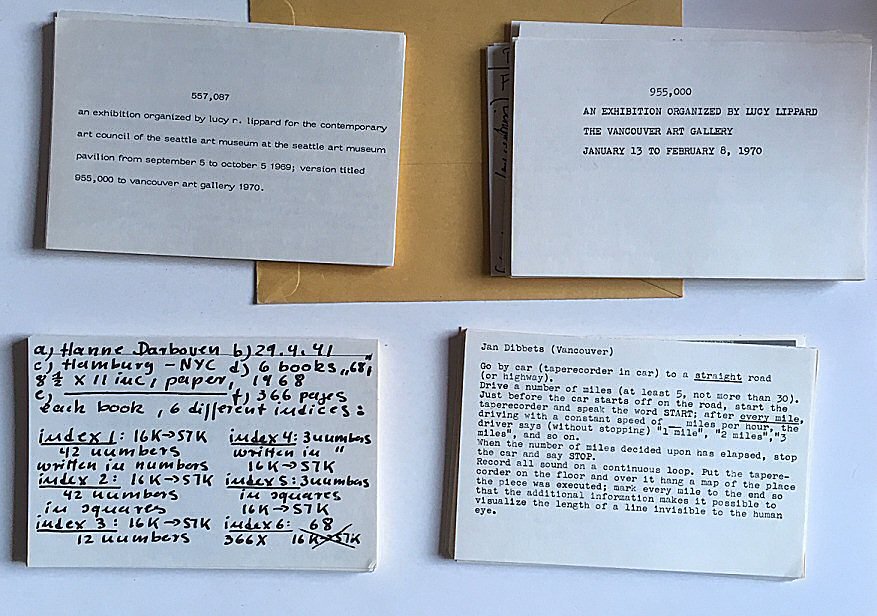 557,087
an exhibition organized by lucy r. lippard for the contemporary
art council of the seattle art museum at the seattle art museum
pavilion from september 5 to october 5 1969; version titled
955,000 to vancouver art gallery 1970.
955,000
AN EXHIBITION ORGANIZED BY LUCY LIPPARD
THE VANCOUVER ART GALLERY
JANUARY 13 TO FEBRUARY 8, 1970
a) Hanne Darboven b) 29.4.41
c) Hamburg - NYC d) 6 books "68",
8 ½ x 11 inc, paper, 1968
e) ________ f) 366 pages
each book, 6 different indices:
index 1: 16K→57K
42 numbers
written in numbers
index 2: 16K→57K
42 numbers
in squares
index 3: 16K→57K
12 numbers
index 4: 3 numbers
written in "
16K→57K
index 5: 3 numbers
in squares
16K→57K
index 6: 68
366X 16K→57K
Jan Dibbets (Vancouver)
Go by car (taperecorder in car) to a straight road
(or highway).
Drive a number of miles (at least 5, not more than 30).
Just before the car starts off on the road, start the
taperecorder and speak the word START; after every mile,
driving with a constant speed of __ miles per hour, the
driver says (without stopping) "1 mile", "2 miles","3
miles", and so on.
When the number of miles decided upon has elapsed, stop
the car and say STOP.
Record all sound on a continuous loop. Put the tapere-
corder on the floor and over it hang a map of the place
the piece was executed; mark every mile to the end so
that the additional information makes it possible to
visualize the length of a line invisible to the human
eye.